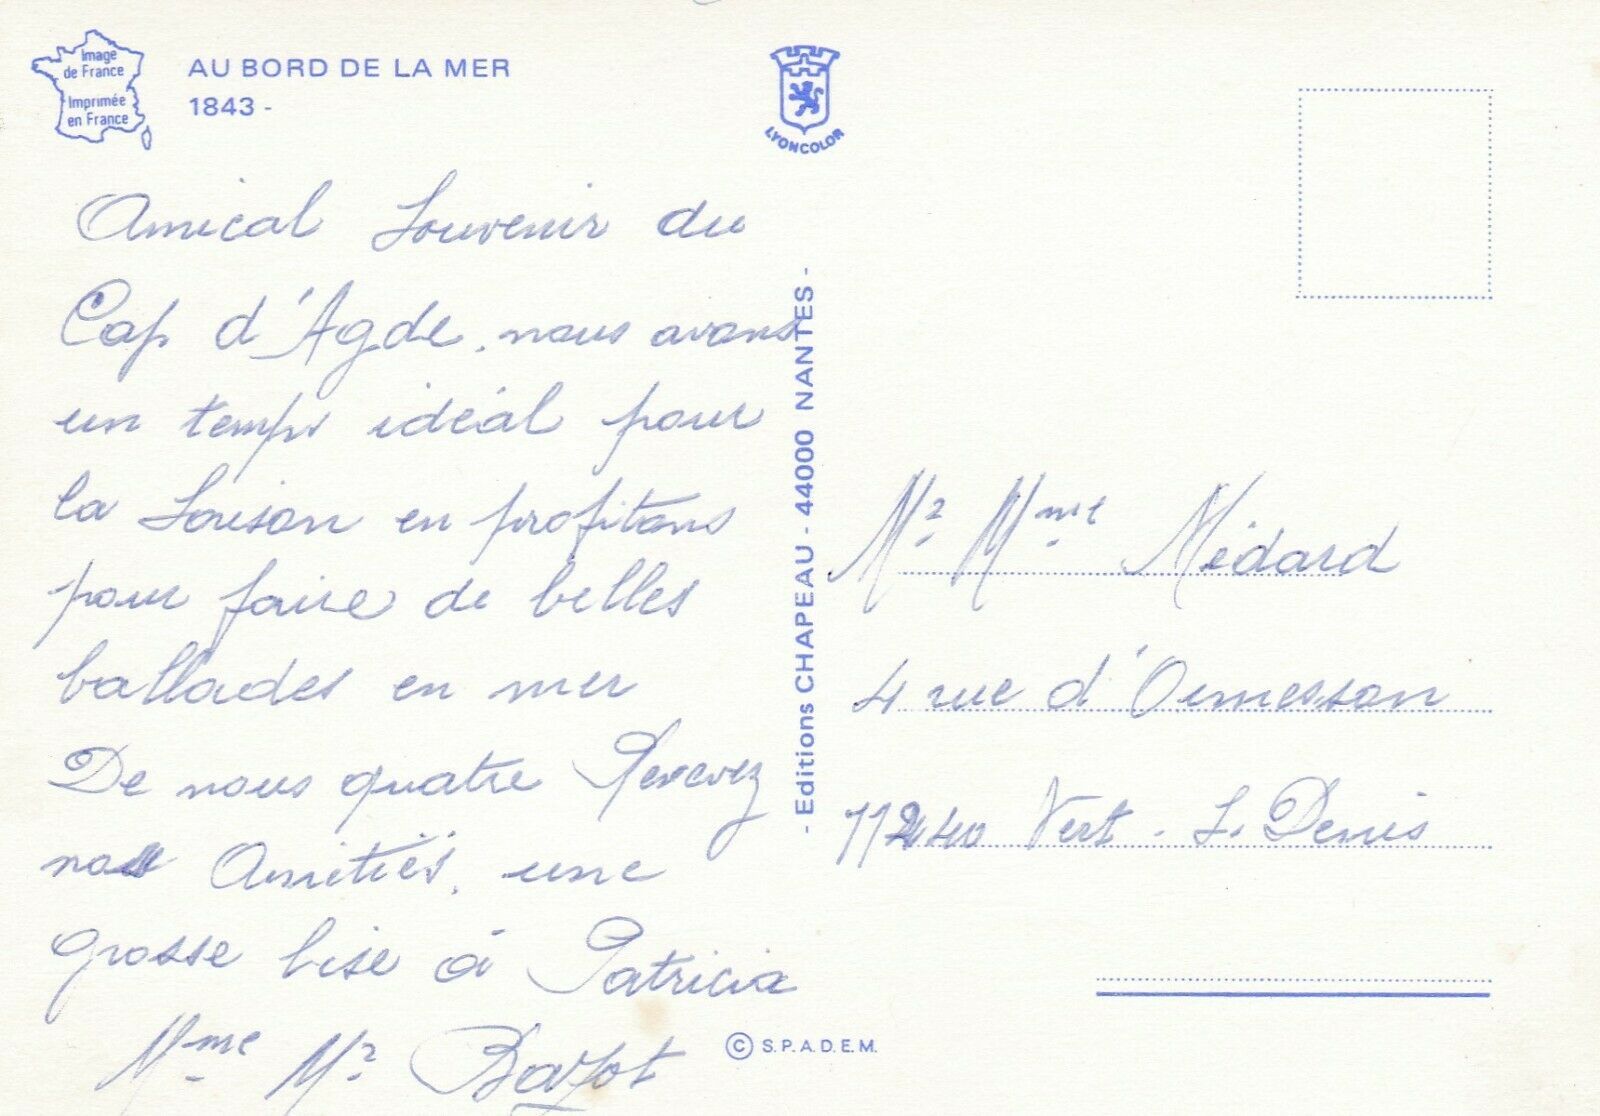 Image
de France
Imprimée
en France
AU BORD DE LA MER
1843 -
LYONCOLOR
Amical Souvenir du
Cap d'Agde, nous avons
un temps idéal pour
la Saison en profitons
pour faire de belles
ballades en mer
De nous quatre Recevez
nos Amitiés, une
grosse bise à Patricia
Mme Mr Bazot
- Editions CHAPEAU - 44000 NANTES -
Mr Mme Médard
4 rue d'Ormesson
77240 Vert-S. Denis
© S.P.A.D.E.M.